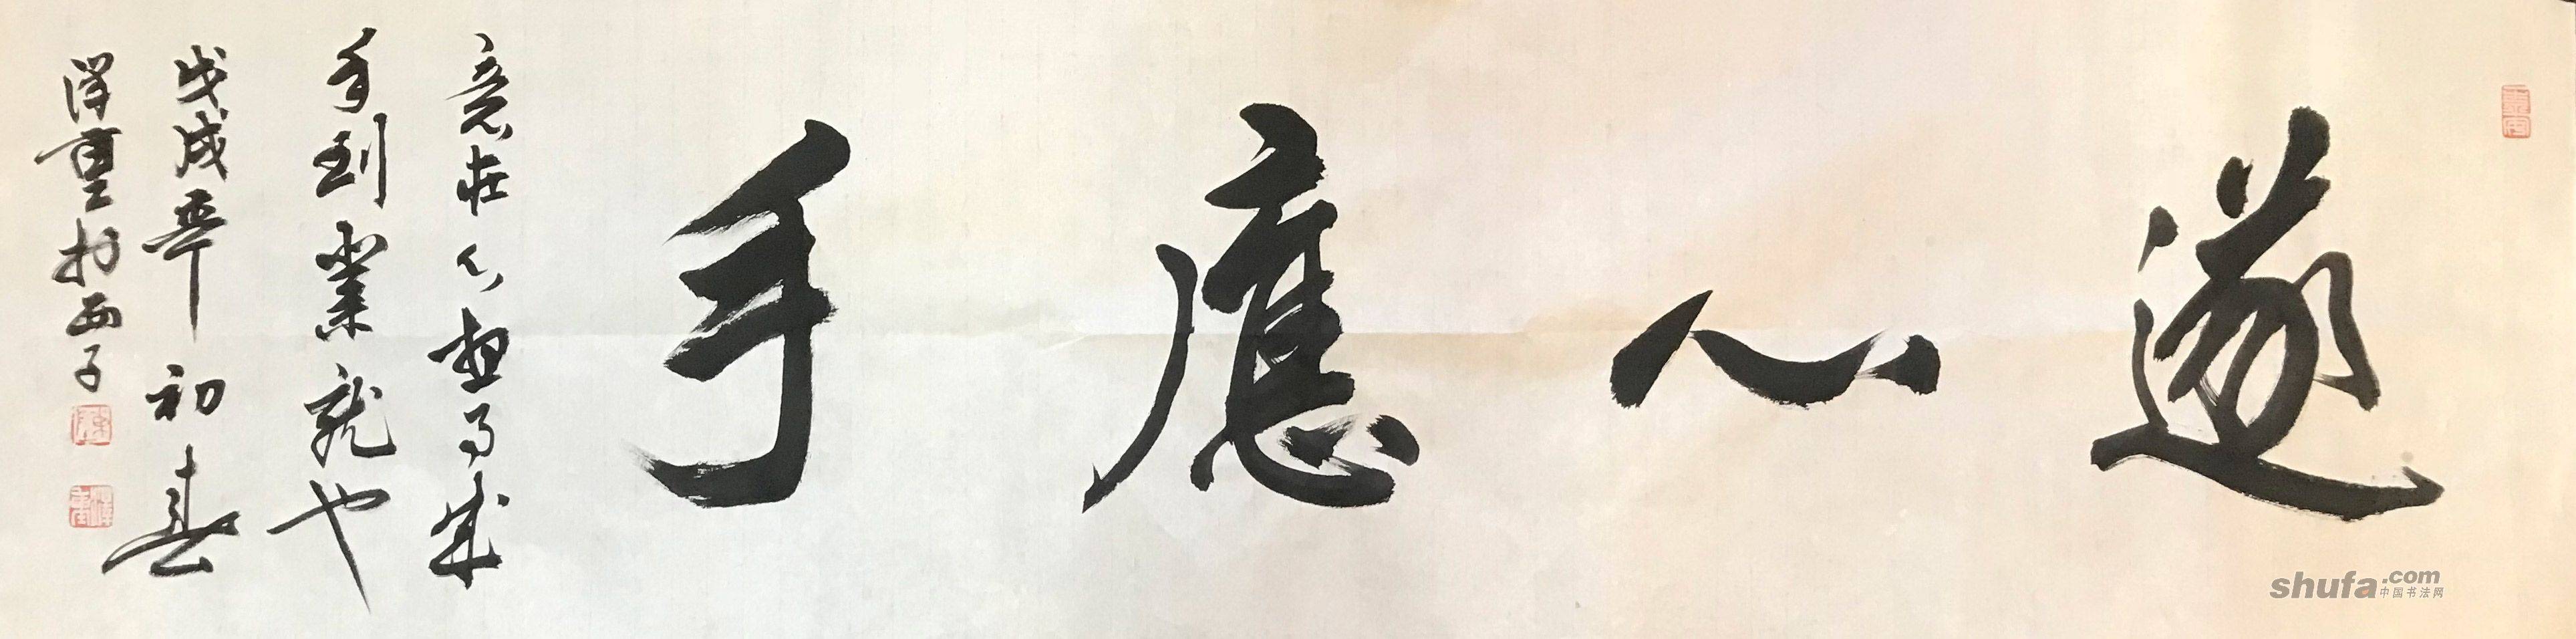 遂心應手
意在心想了成
手到業就也
戊戌年初春
澤重於西子
shufa.com
中国书法网